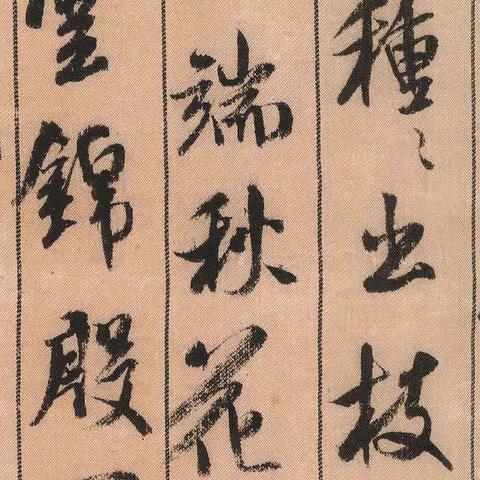 種〻出枝
端秋花
雲錦殷